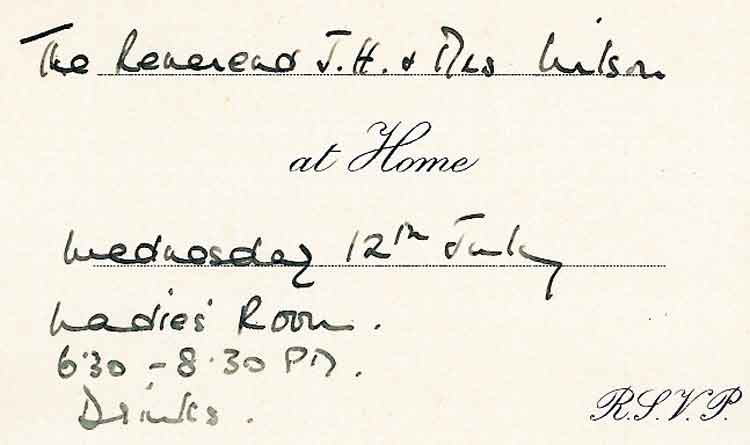 The Reverend J.H. & Mrs Wilson
at Home
Wednesday 12th July
Ladies' Room.
6.30 - 8.30 PM.
Drinks.
R.S.V.P.